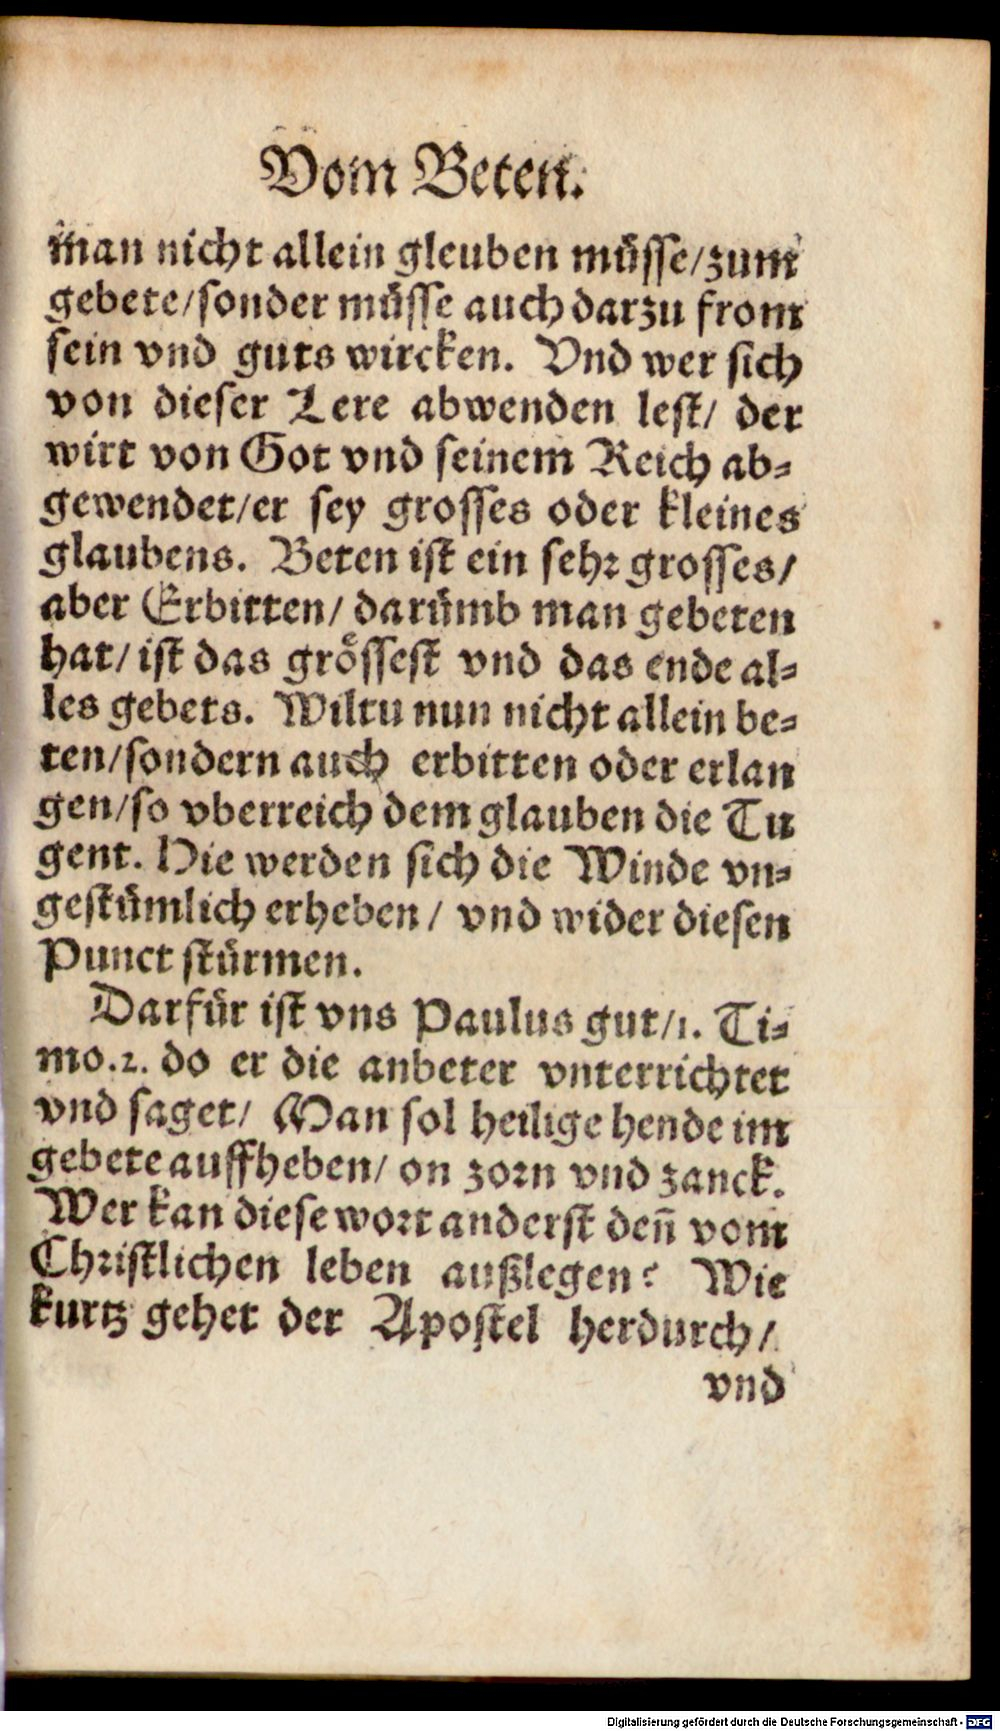 Vom Beten.
man nicht allein gleuben müsse/zum
gebete/sonder müsse auch darzu from
sein vnd guts wircken. Vnd wer sich
von dieser Lere abwenden lest/ der
wirt von Got vnd seinem Reich ab⸗
gewendet/er sey grosses oder kleines
glaubens. Beten ist ein sehr grosses/
aber Erbitten/ darümb man gebeten
hat/ ist das grössest vnd das ende al⸗
les gebets. Wiltu nun nicht allein be⸗
ten/sondern auch erbitten oder erlan
gen/so vberreich dem glauben die Tu
gent. Hie werden sich die Winde vn⸗
gestümlich erheben/ vnd wider diesen
Punct stürmen.
Darfür ist vns Paulus gut/1. Ti⸗
mo.2. do er die anbeter vnterrichtet
vnd saget/ Man sol heilige hende im
gebete auffheben/ on zorn vnd zanck.
Wer kan diese wort anderst deñ vom
Christlichen leben außlegen? Wie
kurtz gehet der Apostel herdurch/
vnd
Digitalisierung gefördert durch die Deutsche Forschungsgemeinschaft - DFG